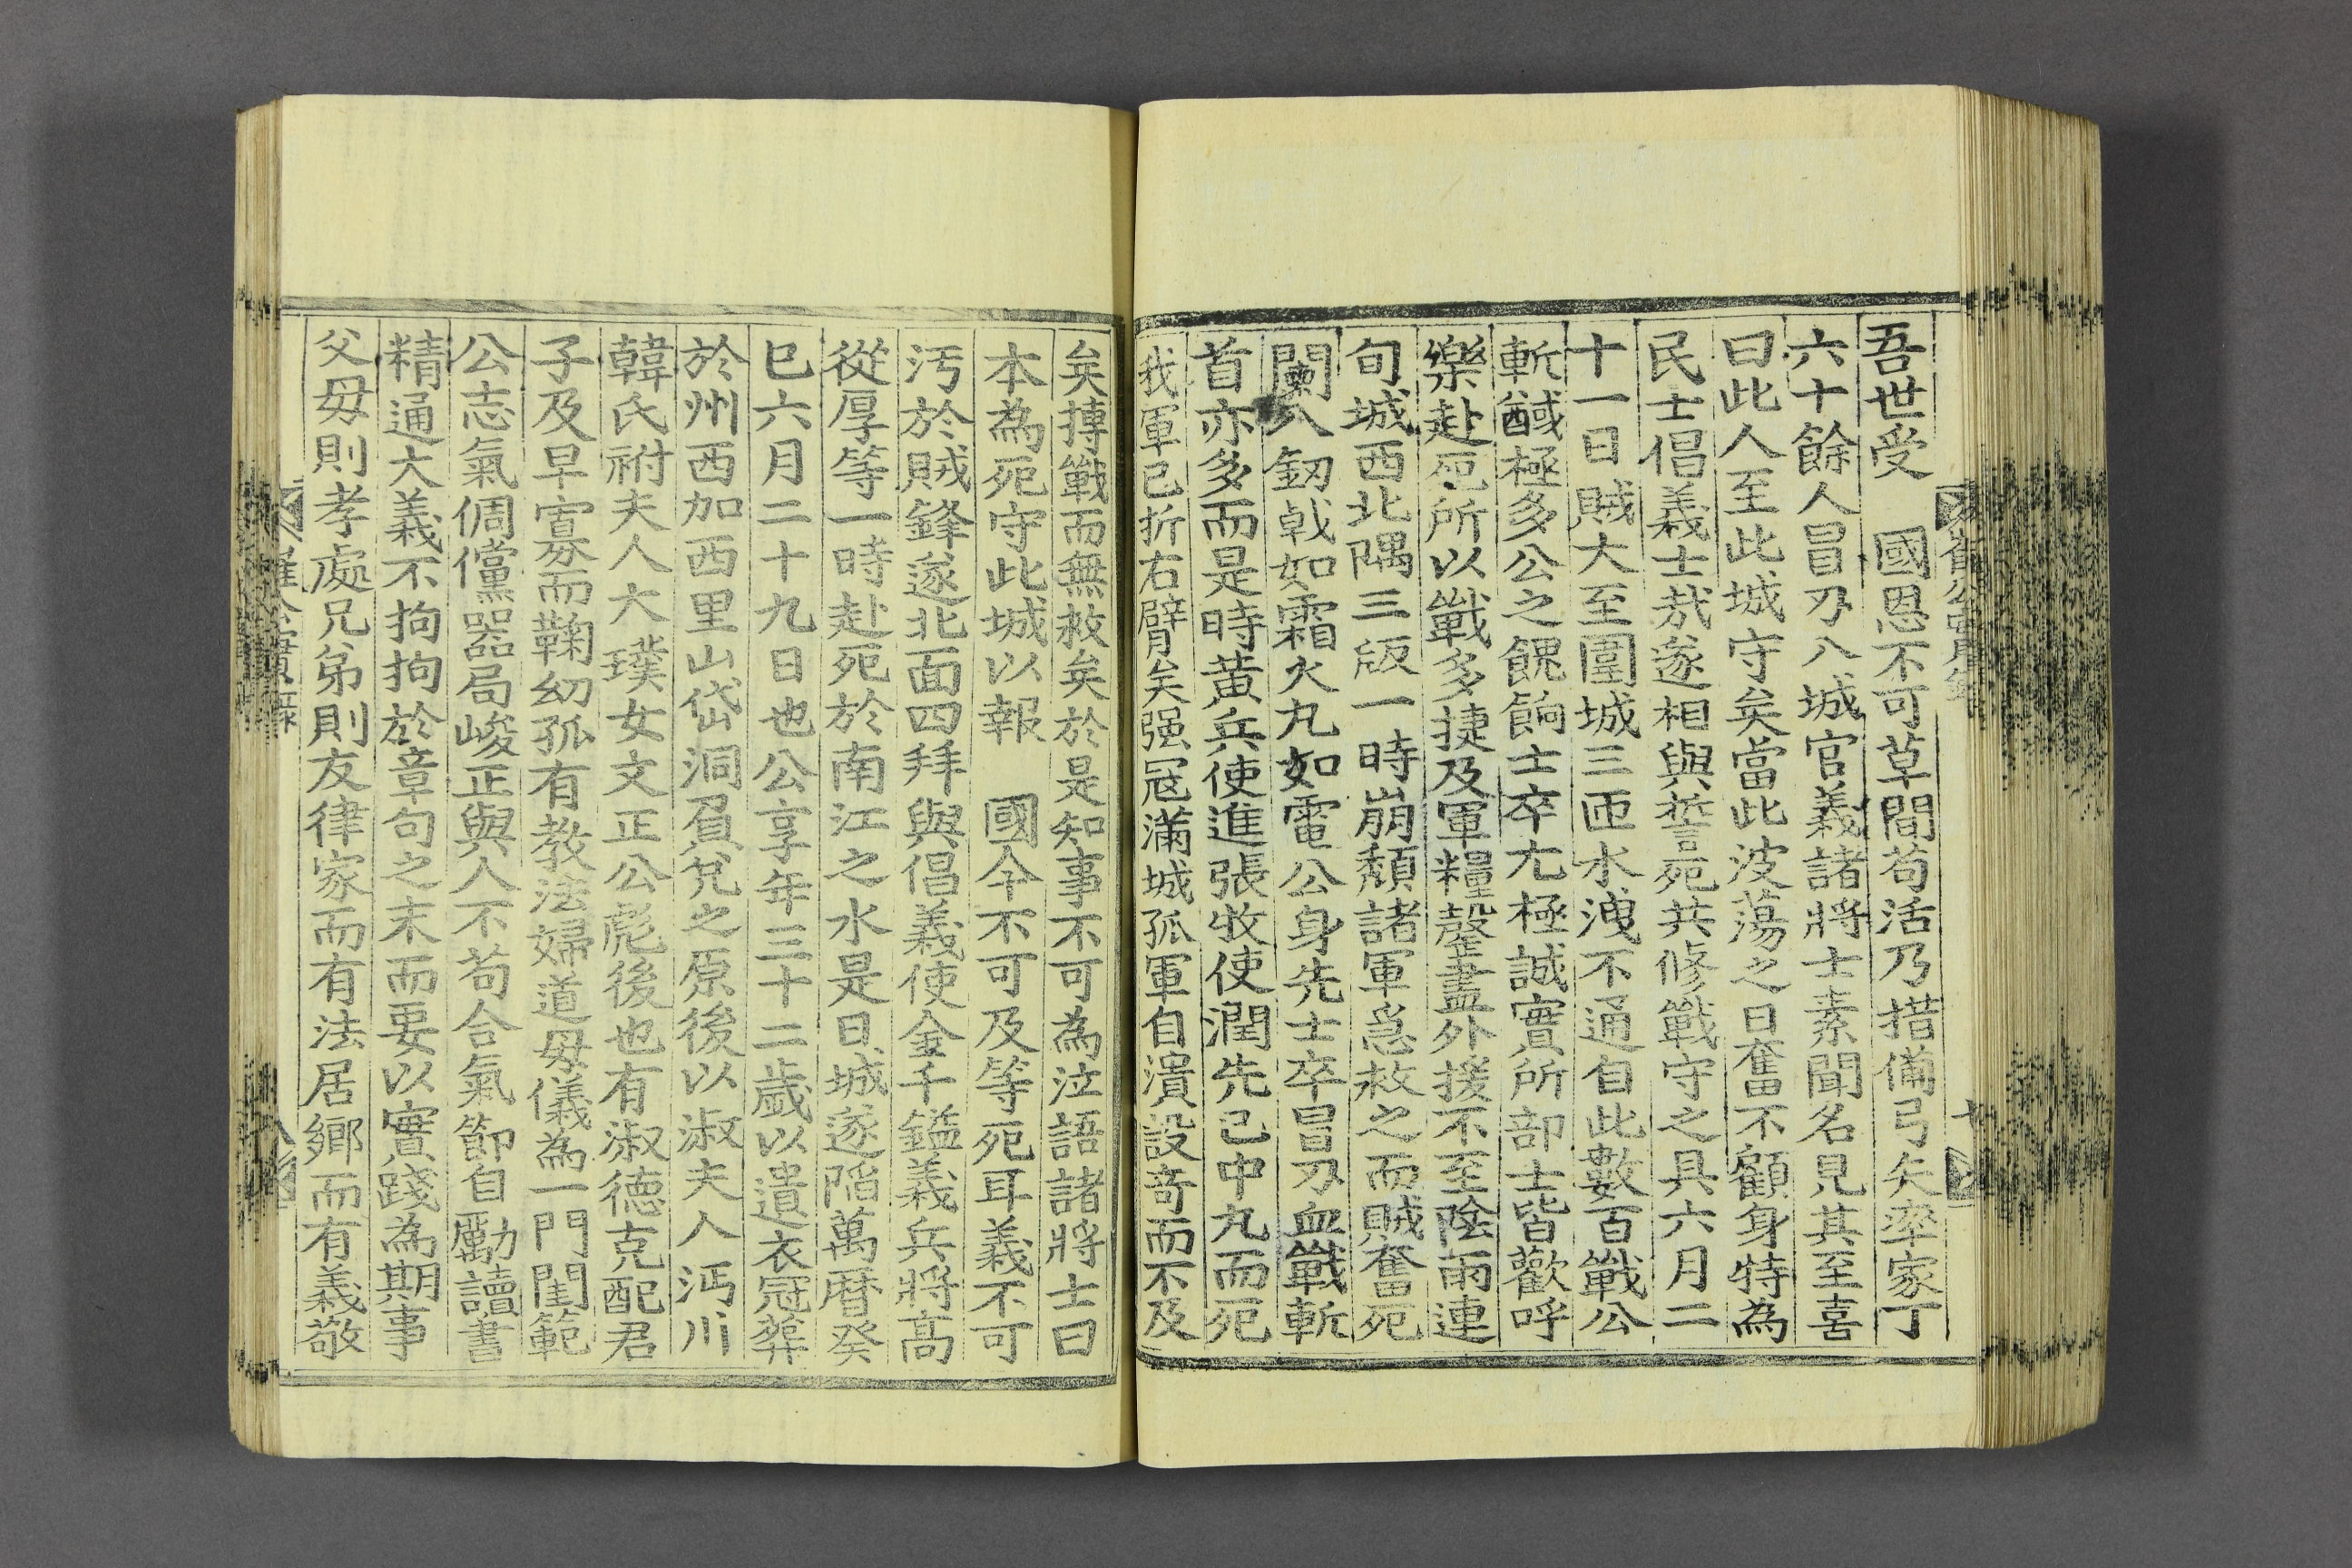 吾世受 國恩不可草間苟活乃措備弓矢率家丁
六十餘人冒刃入城官義諸將士素聞名見其至喜
曰此人至此城守矣當此波蕩之日奮不顧身特為
民士倡義士哉遂相與誓死共修戰守之具六月二
十一日賊大至圍城三匝水洩不通自此數百戰公
斬馘極多公之餽餉士卒尤極誠實所部士皆歡呼
樂赴死所以戰多捷及軍糧罄盡外援不至陰雨連
旬城西北隅三版一時崩頹諸軍急救之而賊奮死
闌入釼戟如霜火丸如電公身先士卒冒刃血戰斬
首亦多而是時黃兵使進張牧使潤先已中丸而死
我軍已折右臂矣强冦滿城孤軍自潰設奇而不及
矣摶戰而無救矣於是知事不可為泣語諸將士曰
本為死守此城以報 國今不可及等死耳義不可
汚於賊鋒遂北面四拜與倡義使金千鎰義兵將高
從厚等一時赴死於南江之水是日城遂陷萬曆癸
巳六月二十九日也公享年三十二歲以遺衣冠葬
於州西加西里山岱洞負兌之原後以淑夫人沔川
韓氏祔夫人大璞女文正公彪後也有淑德克配君
子及早寡而鞠幼孤有教法婦道母儀為一門閨範
公志氣倜儻器局峻正與人不苟合氣節自勵讀書
精通大義不拘拘於章句之末而要以實踐為期事
父母則孝處兄弟則友律家而有法居鄉而有義敬